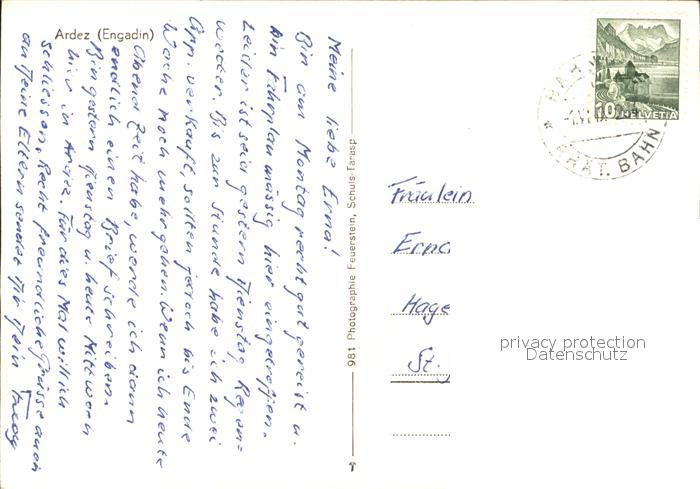 Ardez (Engadin)
Meine liebe Erna!
Bin am Montag recht gut gereist u.
bin fahrplanmässig hier eingetroffen.
Leider ist seit gestern Dienstag Regen-
wetter. Bis zur Stunde habe ich zwei
App. verkauft, sollten jedoch bis Ende
Woche noch mehr gehen. Wenn ich heute
Abend Zeit habe, werde ich dann
endlich einen Brief schreiben.
Bin gestern Dienstag u. heute Mittwoch
hier in Ardez. Für dies Mal will ich
schliessen. Recht freundliche Grüsse auch
an Deine Eltern sendet Dir Dein
981 Photographie Feuerstein, Schuls-Tarasp
10 HELVETIA
BAHN
Fräulein
Erna
Hage
St.
privacy protection
Datenschutz